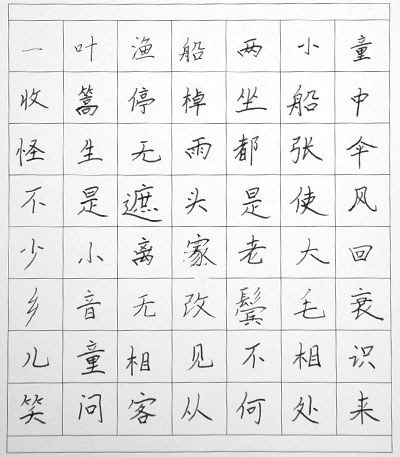 一叶渔船两小童
收篙停棹坐船中
怪生无雨都张伞
不是遮头是使风
少小离家老大回
乡音无改鬓毛衰
儿童相见不相识
笑问客从何处来